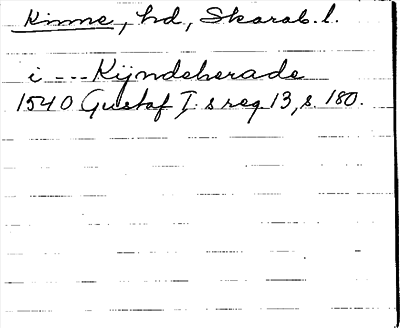 Kinne, hd, Skarab. l.
i --- Kijndeherade
1540 Gustaf I:s reg 13, s. 180.